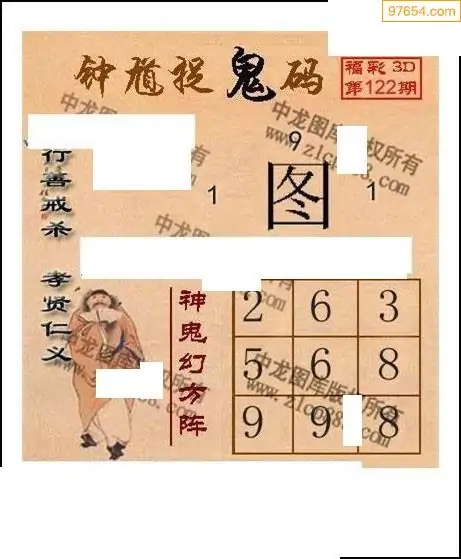 97654.com
钟馗捉鬼码
福彩3D
第122期
中龙图库版权所有
www.zlcp88.com
行善戒杀 孝贤仁义
9
1 图 1
神鬼幻方阵
2 6 3
5 6 8
9 9 8
中龙图库版权所有
www.zlcp88.com